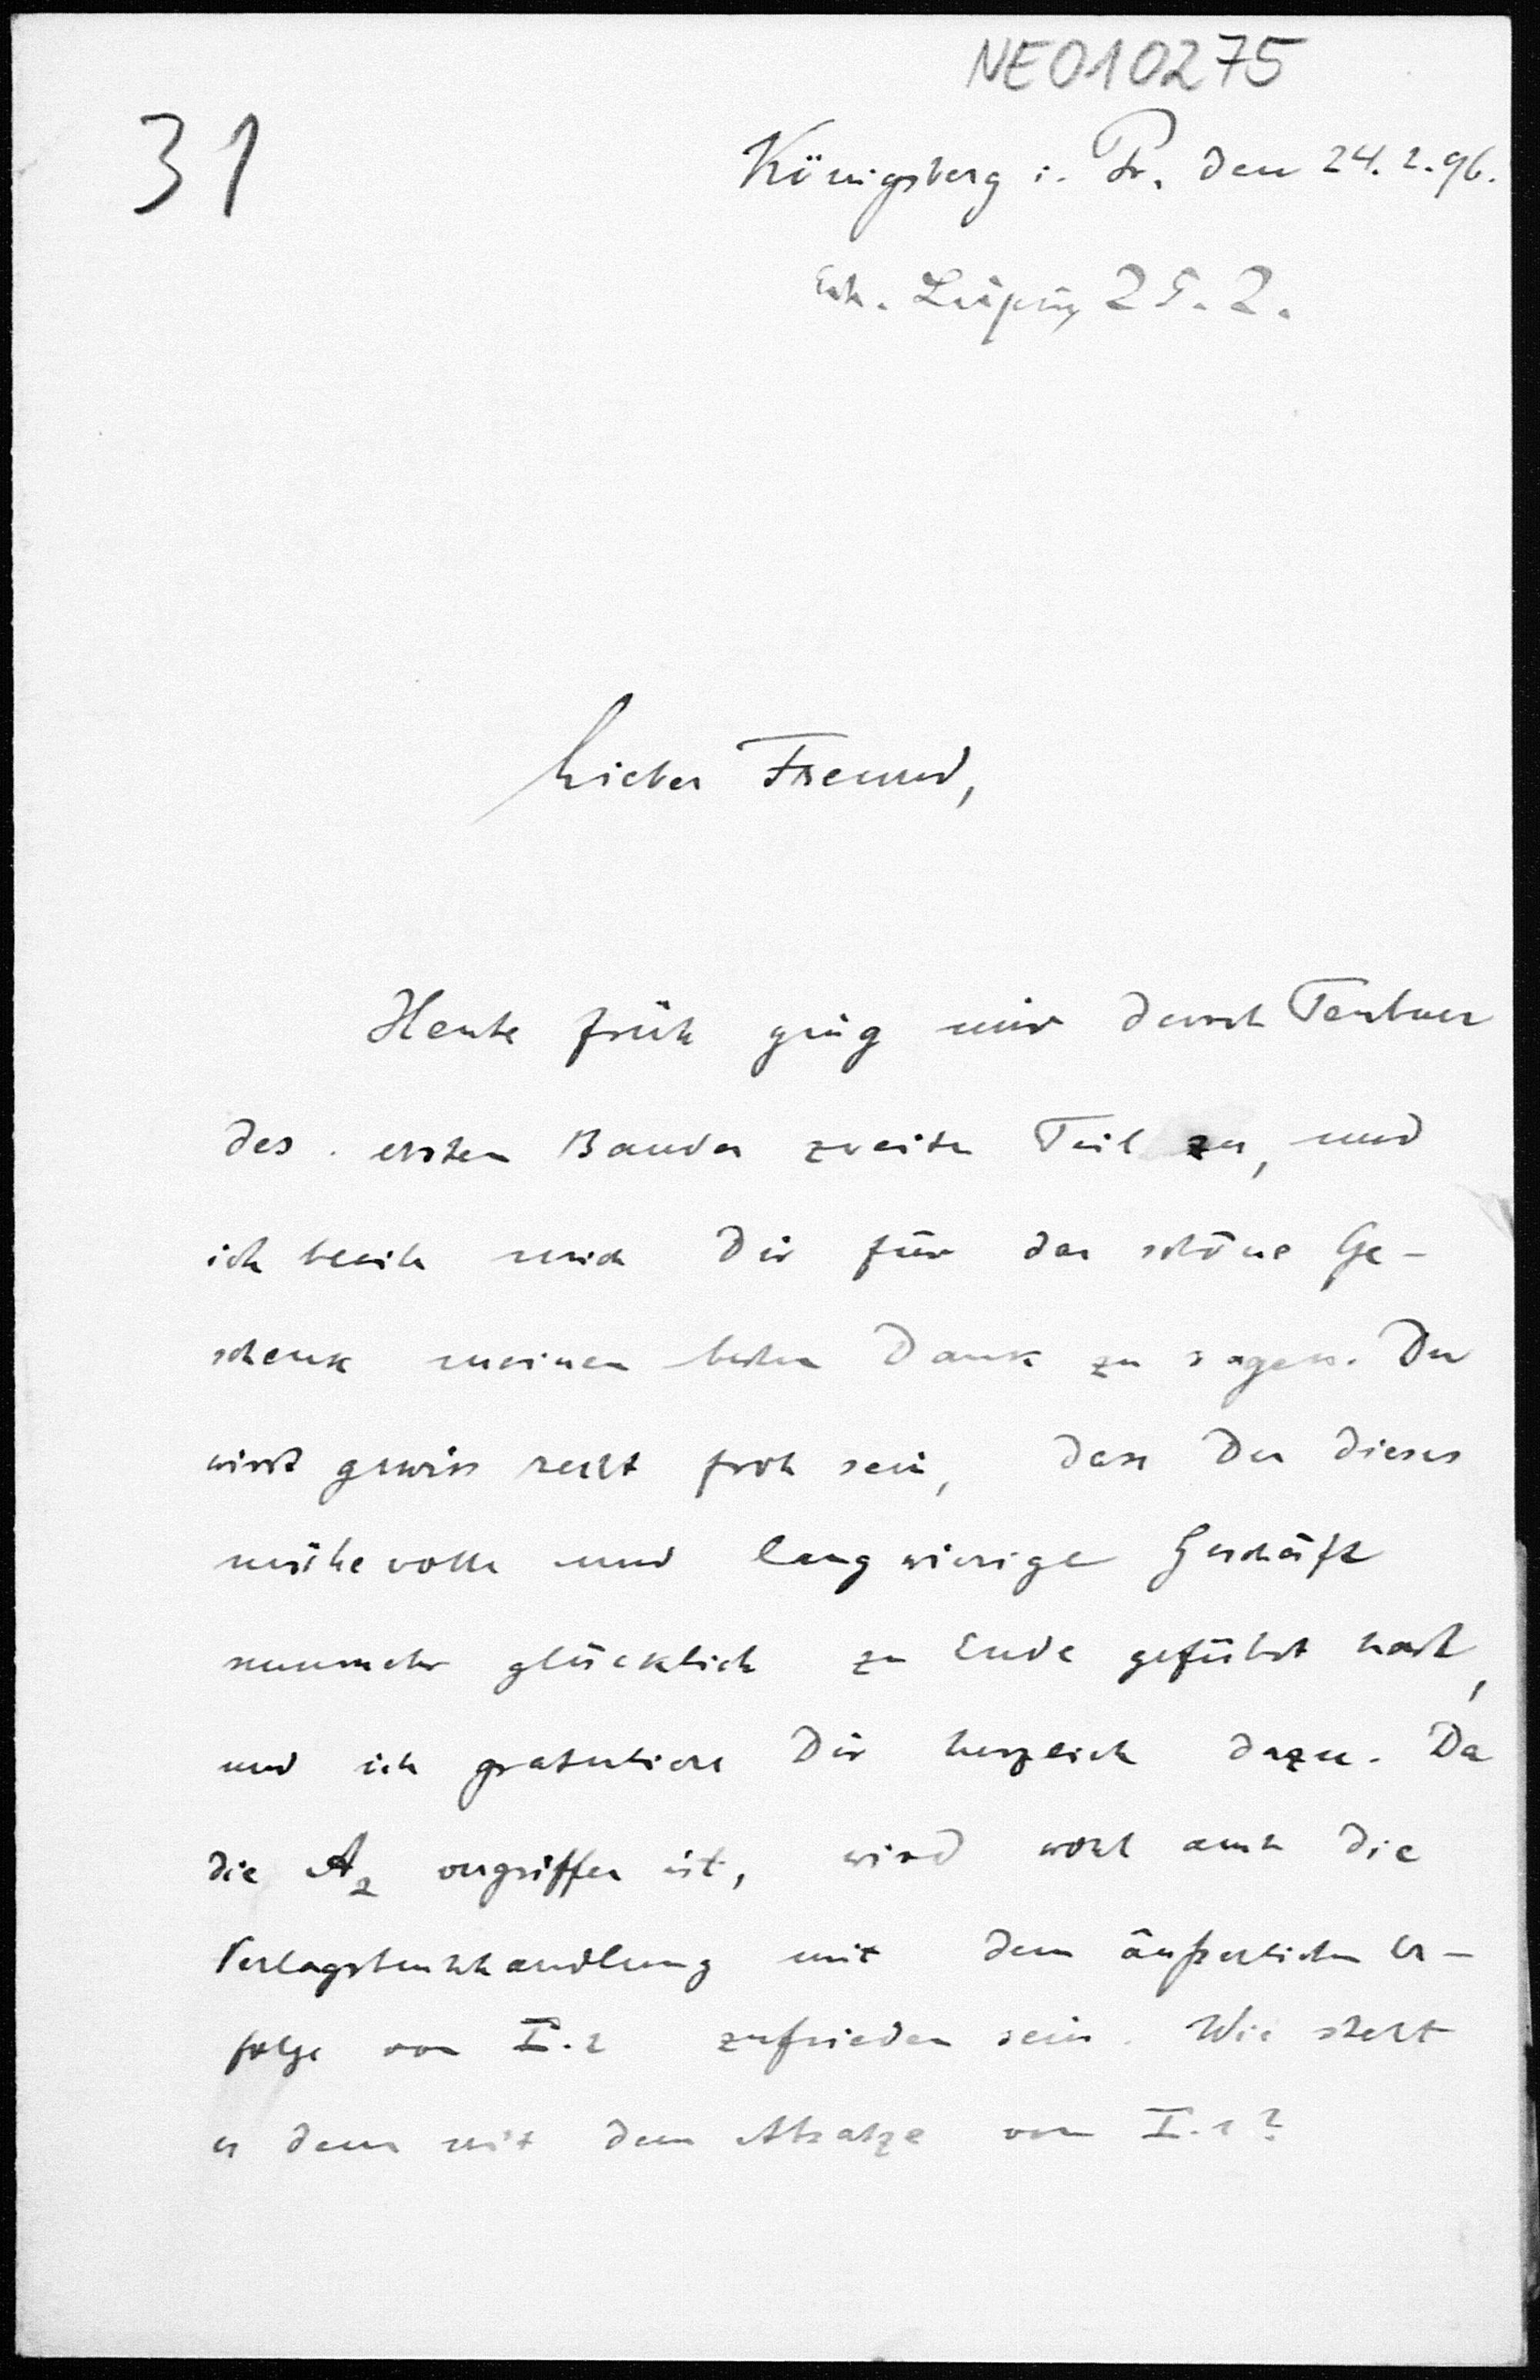 NE010275
31
Königsberg i. Pr. den 24.2.96.
Erh. Leipzig 25.2.
Lieber Freund,
Heute früh ging mir durch Teubner
des ersten Bandes zweiter Teil zu, und
ich beeile mich Dir für das schöne Ge-
schenk meinen besten Dank zu sagen. Du
wirst gewiss recht froh sein, dass Du dieses
mühevolle und langwierige Geschäft
nunmehr glücklich zu Ende geführt hast,
und ich gratuliere Dir herzlich dazu. Da
die A2 vergriffen ist, wird wohl auch die
Verlagsbuchhandlung mit dem äußerlichen Er-
folge von I.2 zufrieden sein. Wie steht
es denn mit dem Absatze von I.1?